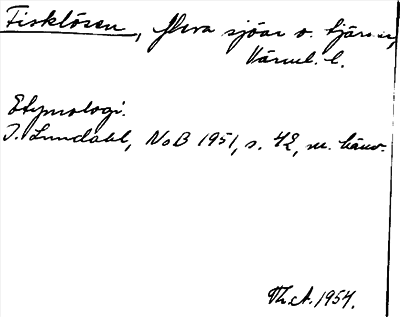 Fisklösen, flera sjöar o. tjärnar,
Värml. l.
Etymologi.
I. Lundahl, NoB 1951, s. 42, m. hänv.
Th.A. 1954.